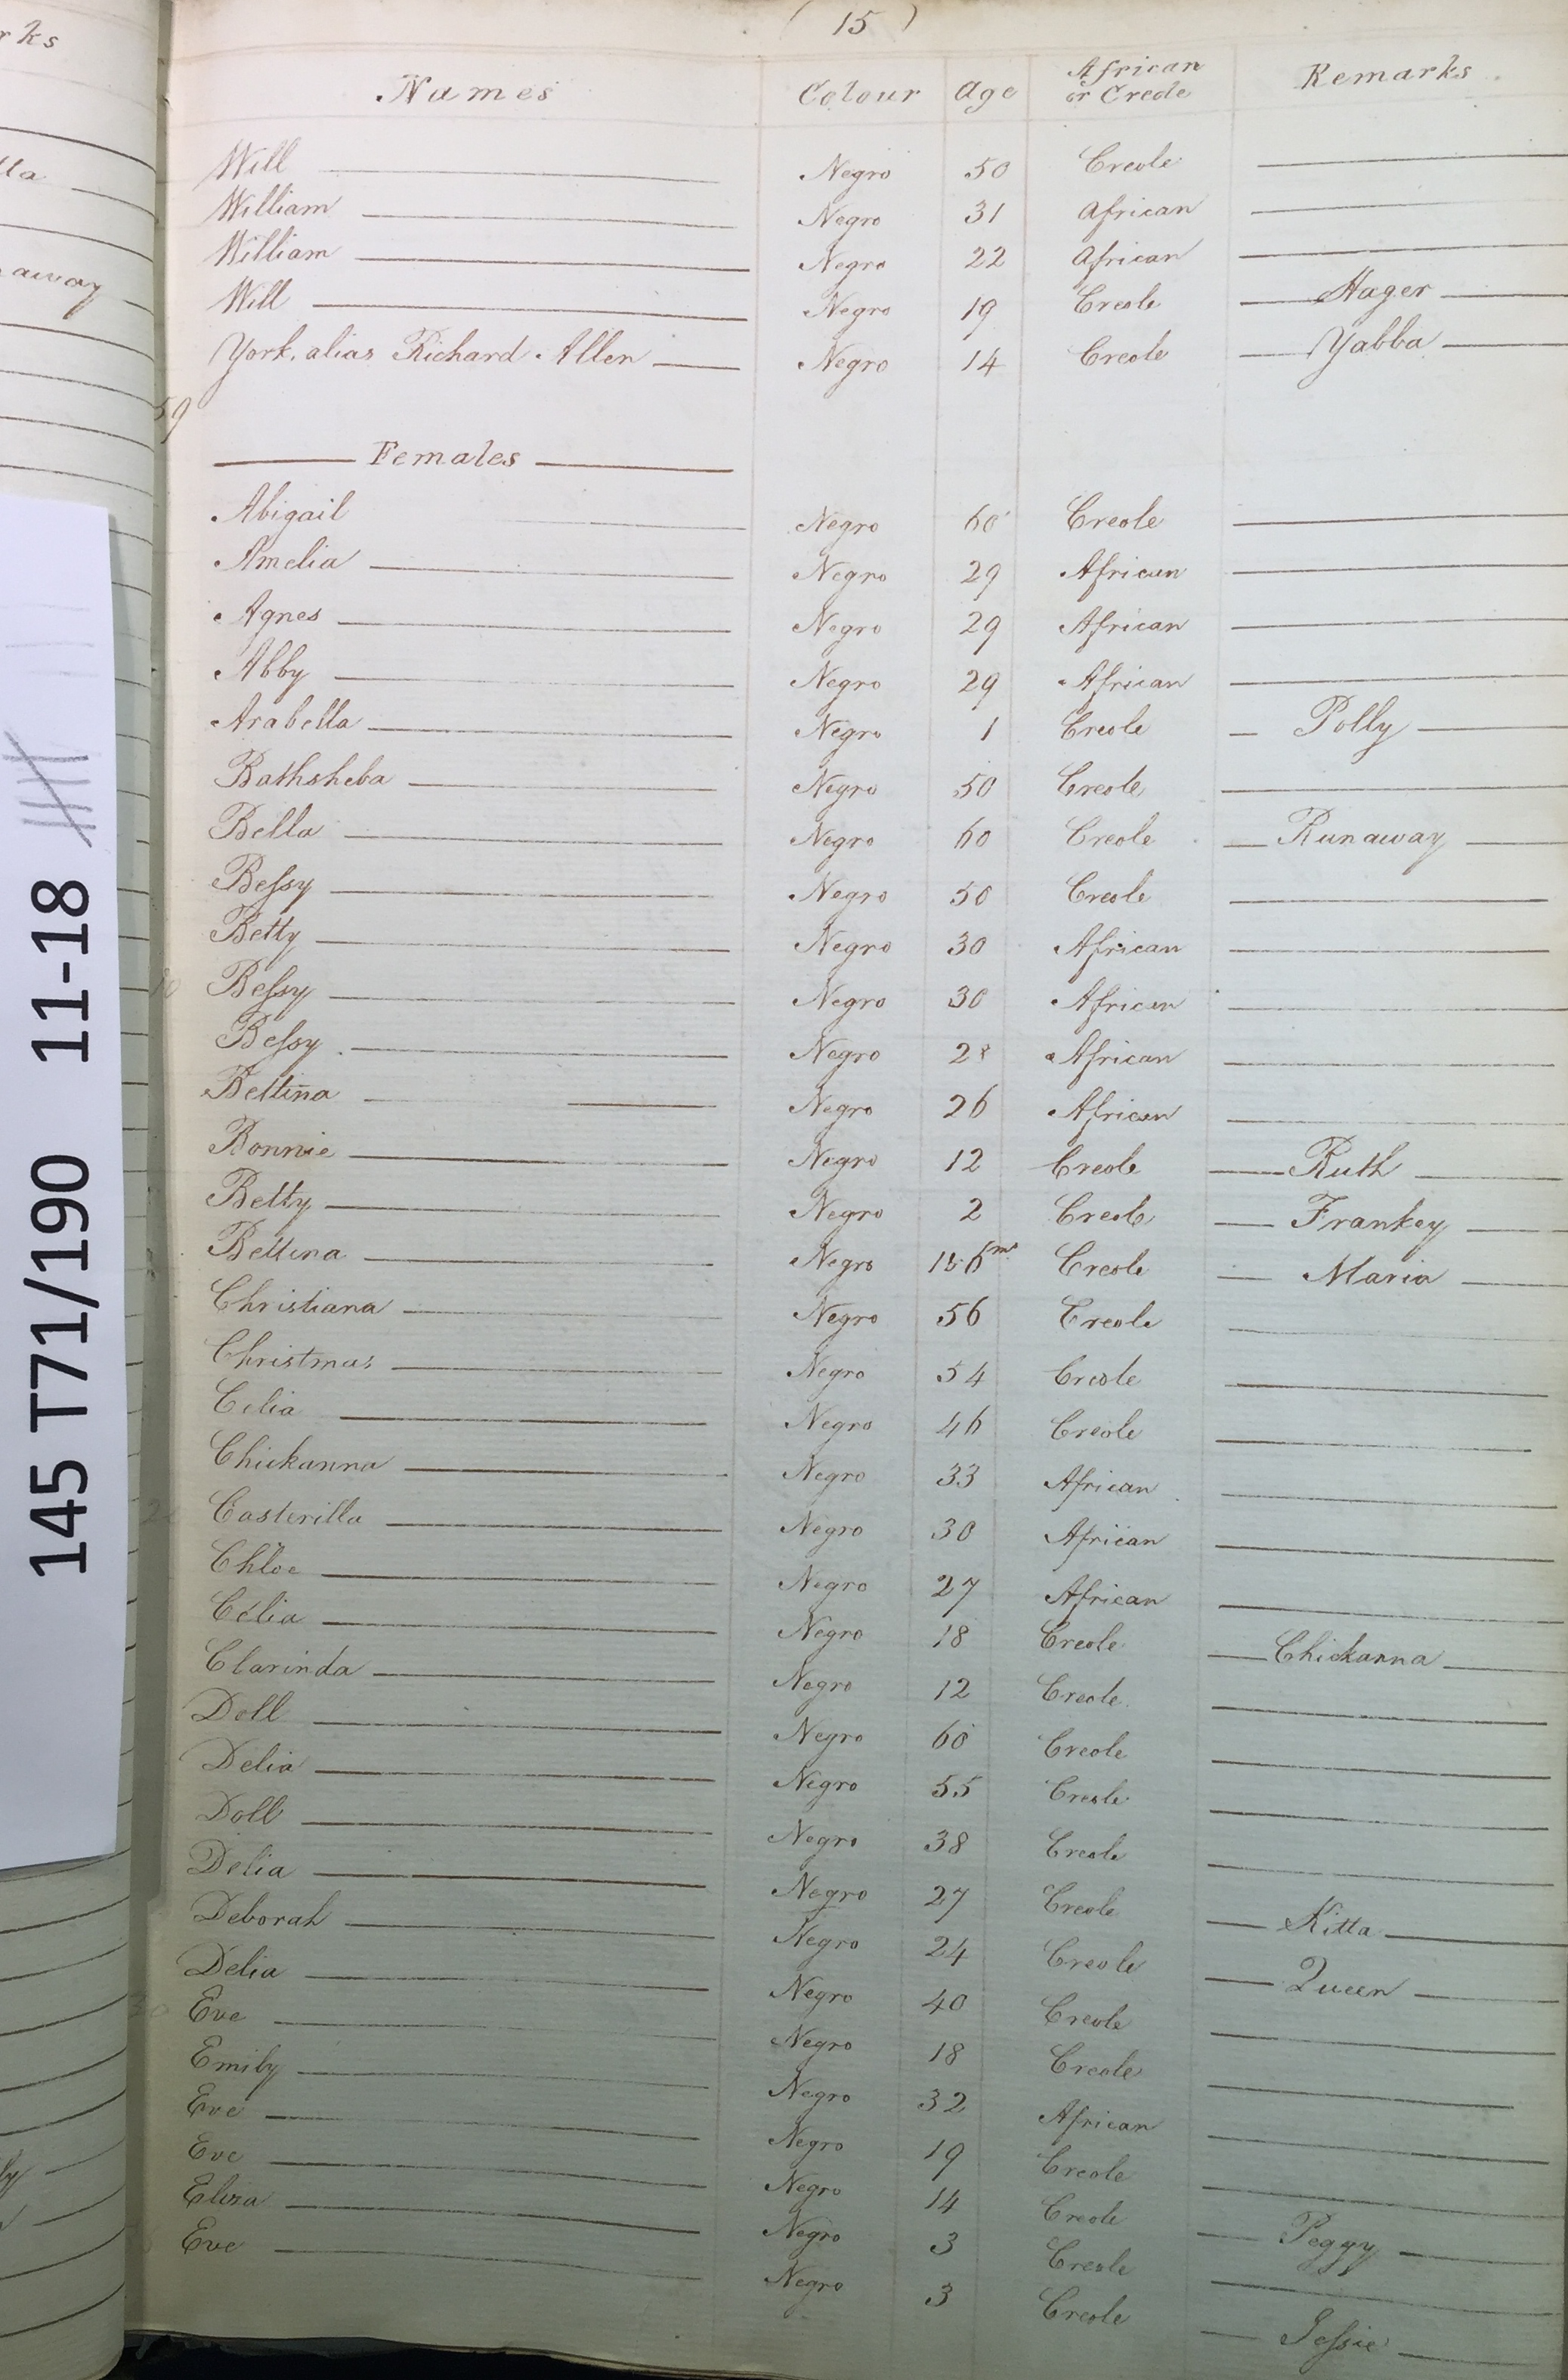 rks
( 15 )
Names Colour Age African or Creole Remarks
Will Negro 50 Creole
William Negro 31 African
William Negro 22 African
away
Will Negro 19 Creole Hager
York, alias Richard Allen Negro 14 Creole Yabba
59
Females
Abigail Negro 60 Creole
Amelia Negro 29 African
Agnes Negro 29 African
Abby Negro 29 African
Arabella Negro 1 Creole Polly
Bathsheba Negro 50 Creole
Bella Negro 60 Creole Runaway
Bessy Negro 50 Creole
Betty Negro 30 African
10 Bessy Negro 30 African
Bessy Negro 28 African
Bettina Negro 26 African
Bonnie Negro 12 Creole Ruth
Betty Negro 2 Creole Frankey
Bettina Negro 1&6ms Creole Maria
Christiana Negro 56 Creole
Christmas Negro 54 Creole
Celia Negro 46 Creole
Chickanna Negro 33 African
Casterilla Negro 30 African
Chloe Negro 27 African
Celia Negro 18 Creole Chickanna
Clarinda Negro 12 Creole
Doll Negro 60 Creole
Delia Negro 55 Creole
Doll Negro 38 Creole
Delia Negro 27 Creole Kitta
Deborah Negro 24 Creole Queen
Delia Negro 40 Creole
Eve Negro 18 Creole
Emily Negro 32 African
Eve Negro 19 Creole
Eve Negro 14 Creole Peggy
Eliza Negro 3 Creole
Eve Negro 3 Creole Jessie
145 T71/190 11-18